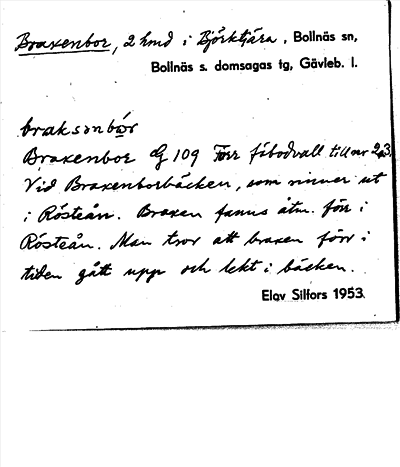 Braxenbor, 2 hmd i Björktjära. Bollnäs sn,
Bollnäs s. domsagas tg, Gävleb. l.
braksənbór
Braxenbor G 109 Förr fäbodvall till nr 2,3.
Vid Braxenborbäcken, som rinner ut
i Rösteån. Braxen fanns åtm. förr i
Rösteån. Man tror att braxen förr i
tiden gått upp och lekt i bäcken.
Elov Silfors 1953.